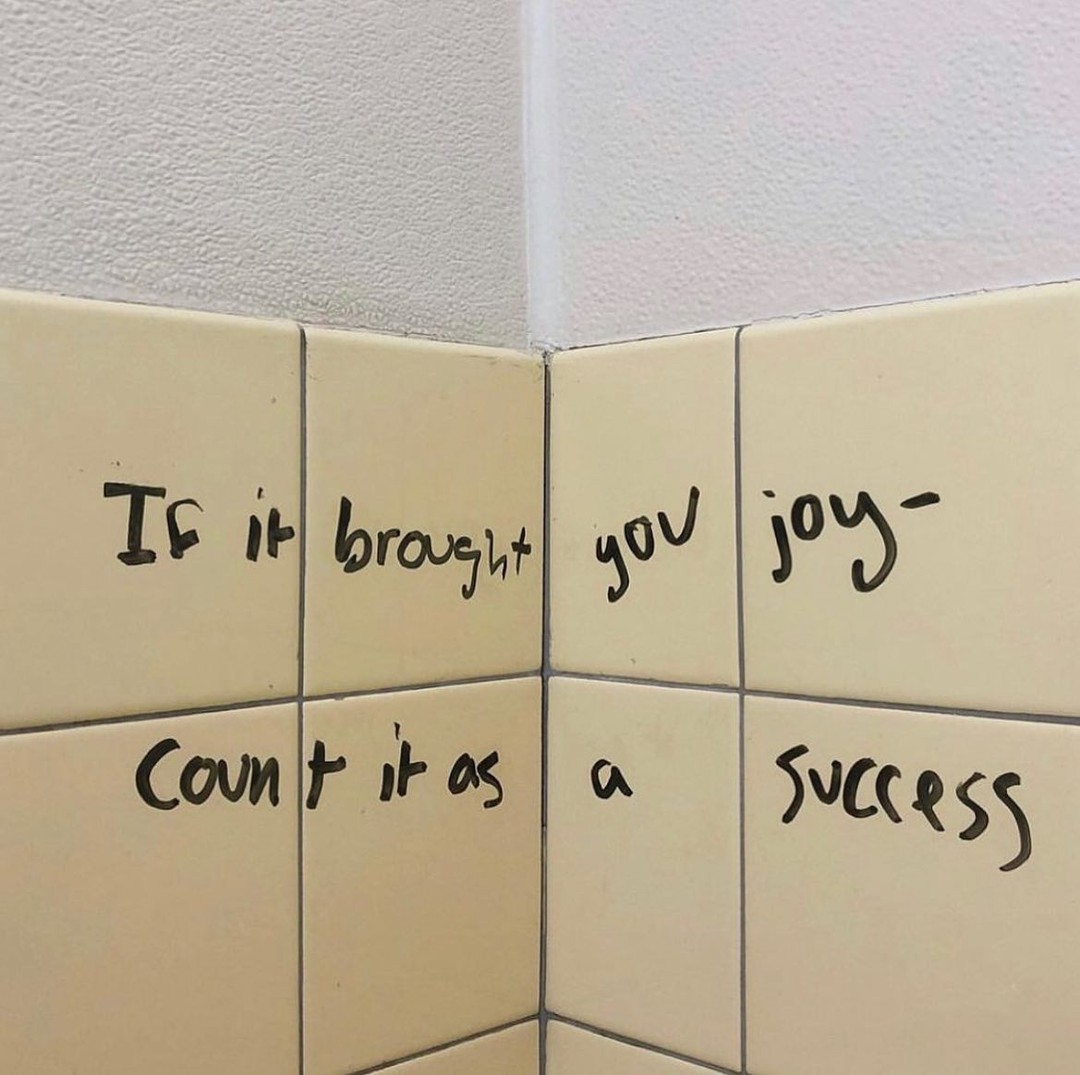 If it brought you joy-
Count it as a success